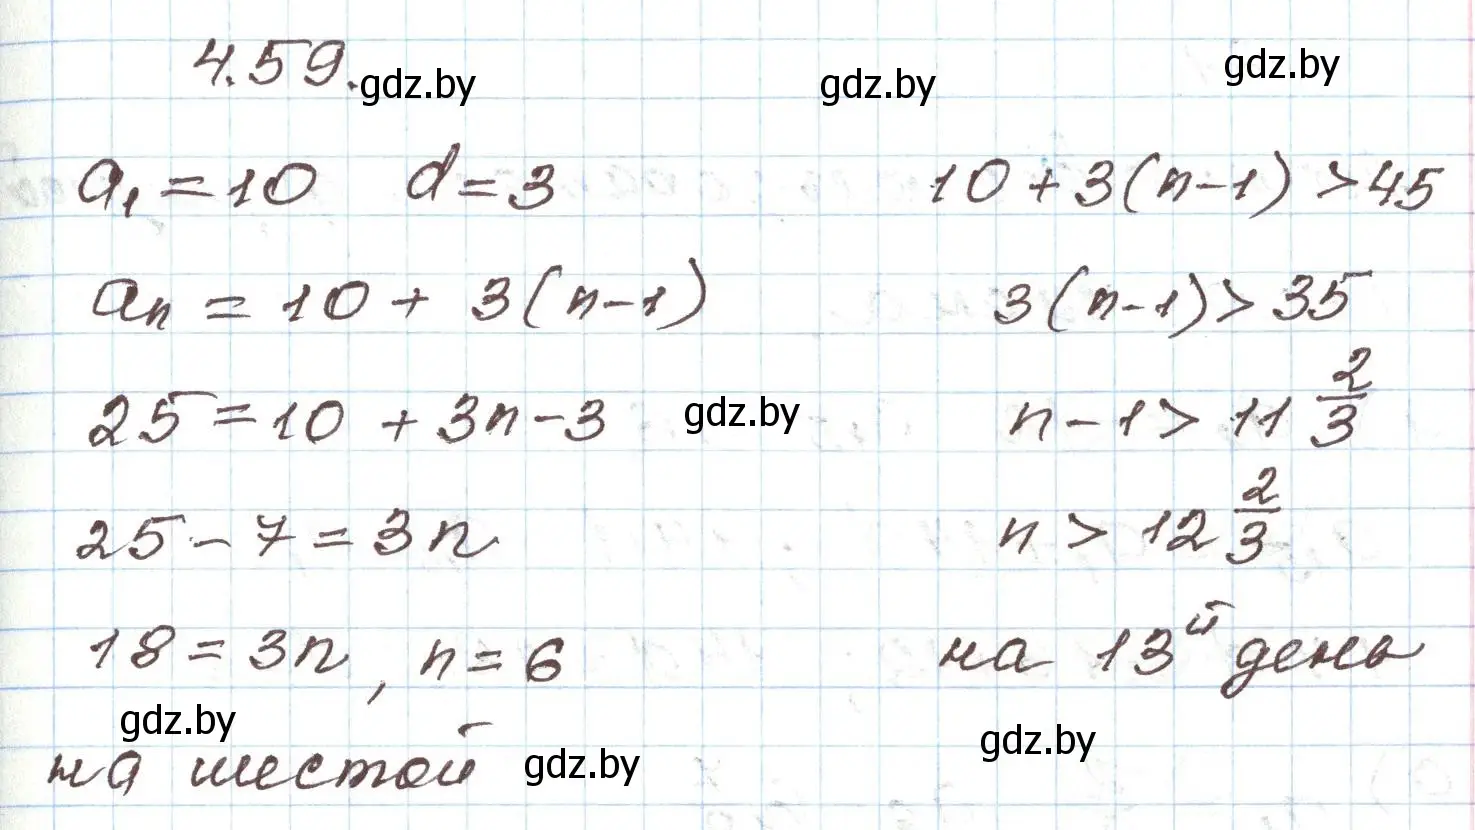 4.59.
gdz.by gdz.by gdz.by
a₁ = 10 d = 3
aₙ = 10 + 3(n-1)
25 = 10 + 3n - 3
gdz.by
25 - 7 = 3n
18 = 3n, n = 6
gdz.by
на шестой
gdz.by
10 + 3(n-1) > 45
3(n-1) > 35
n - 1 > 11 2/3
n > 12 2/3
на 13й день
gdz.by